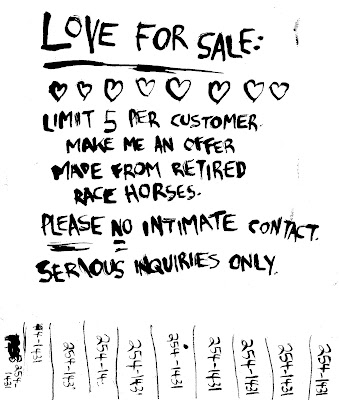 LOVE FOR SALE:
LIMIT 5 PER CUSTOMER.
MAKE ME AN OFFER
MADE FROM RETIRED
RACE HORSES.
PLEASE NO INTIMATE CONTACT.
SERIOUS INQUIRIES ONLY.
254-1431
4-1431
254-143
254-14
254-143
254-1431
254-1431
254-1431
254-1431
254-1431